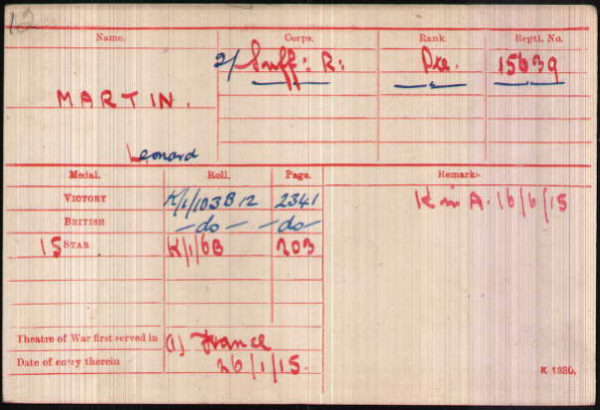 12
Name. Corps. Rank Regtl. No.
2/ Suff: R: Pte. 15639
MARTIN.
Leonard
Medal. Roll. Page. Remarks
VICTORY K/1/103B12 2341 K in A. 16/6/15
BRITISH —do— —do—
15 STAR K/1/6B 203
Theatre of War first served in (1) France
Date of entry therein 26/1/15.
K 1380.